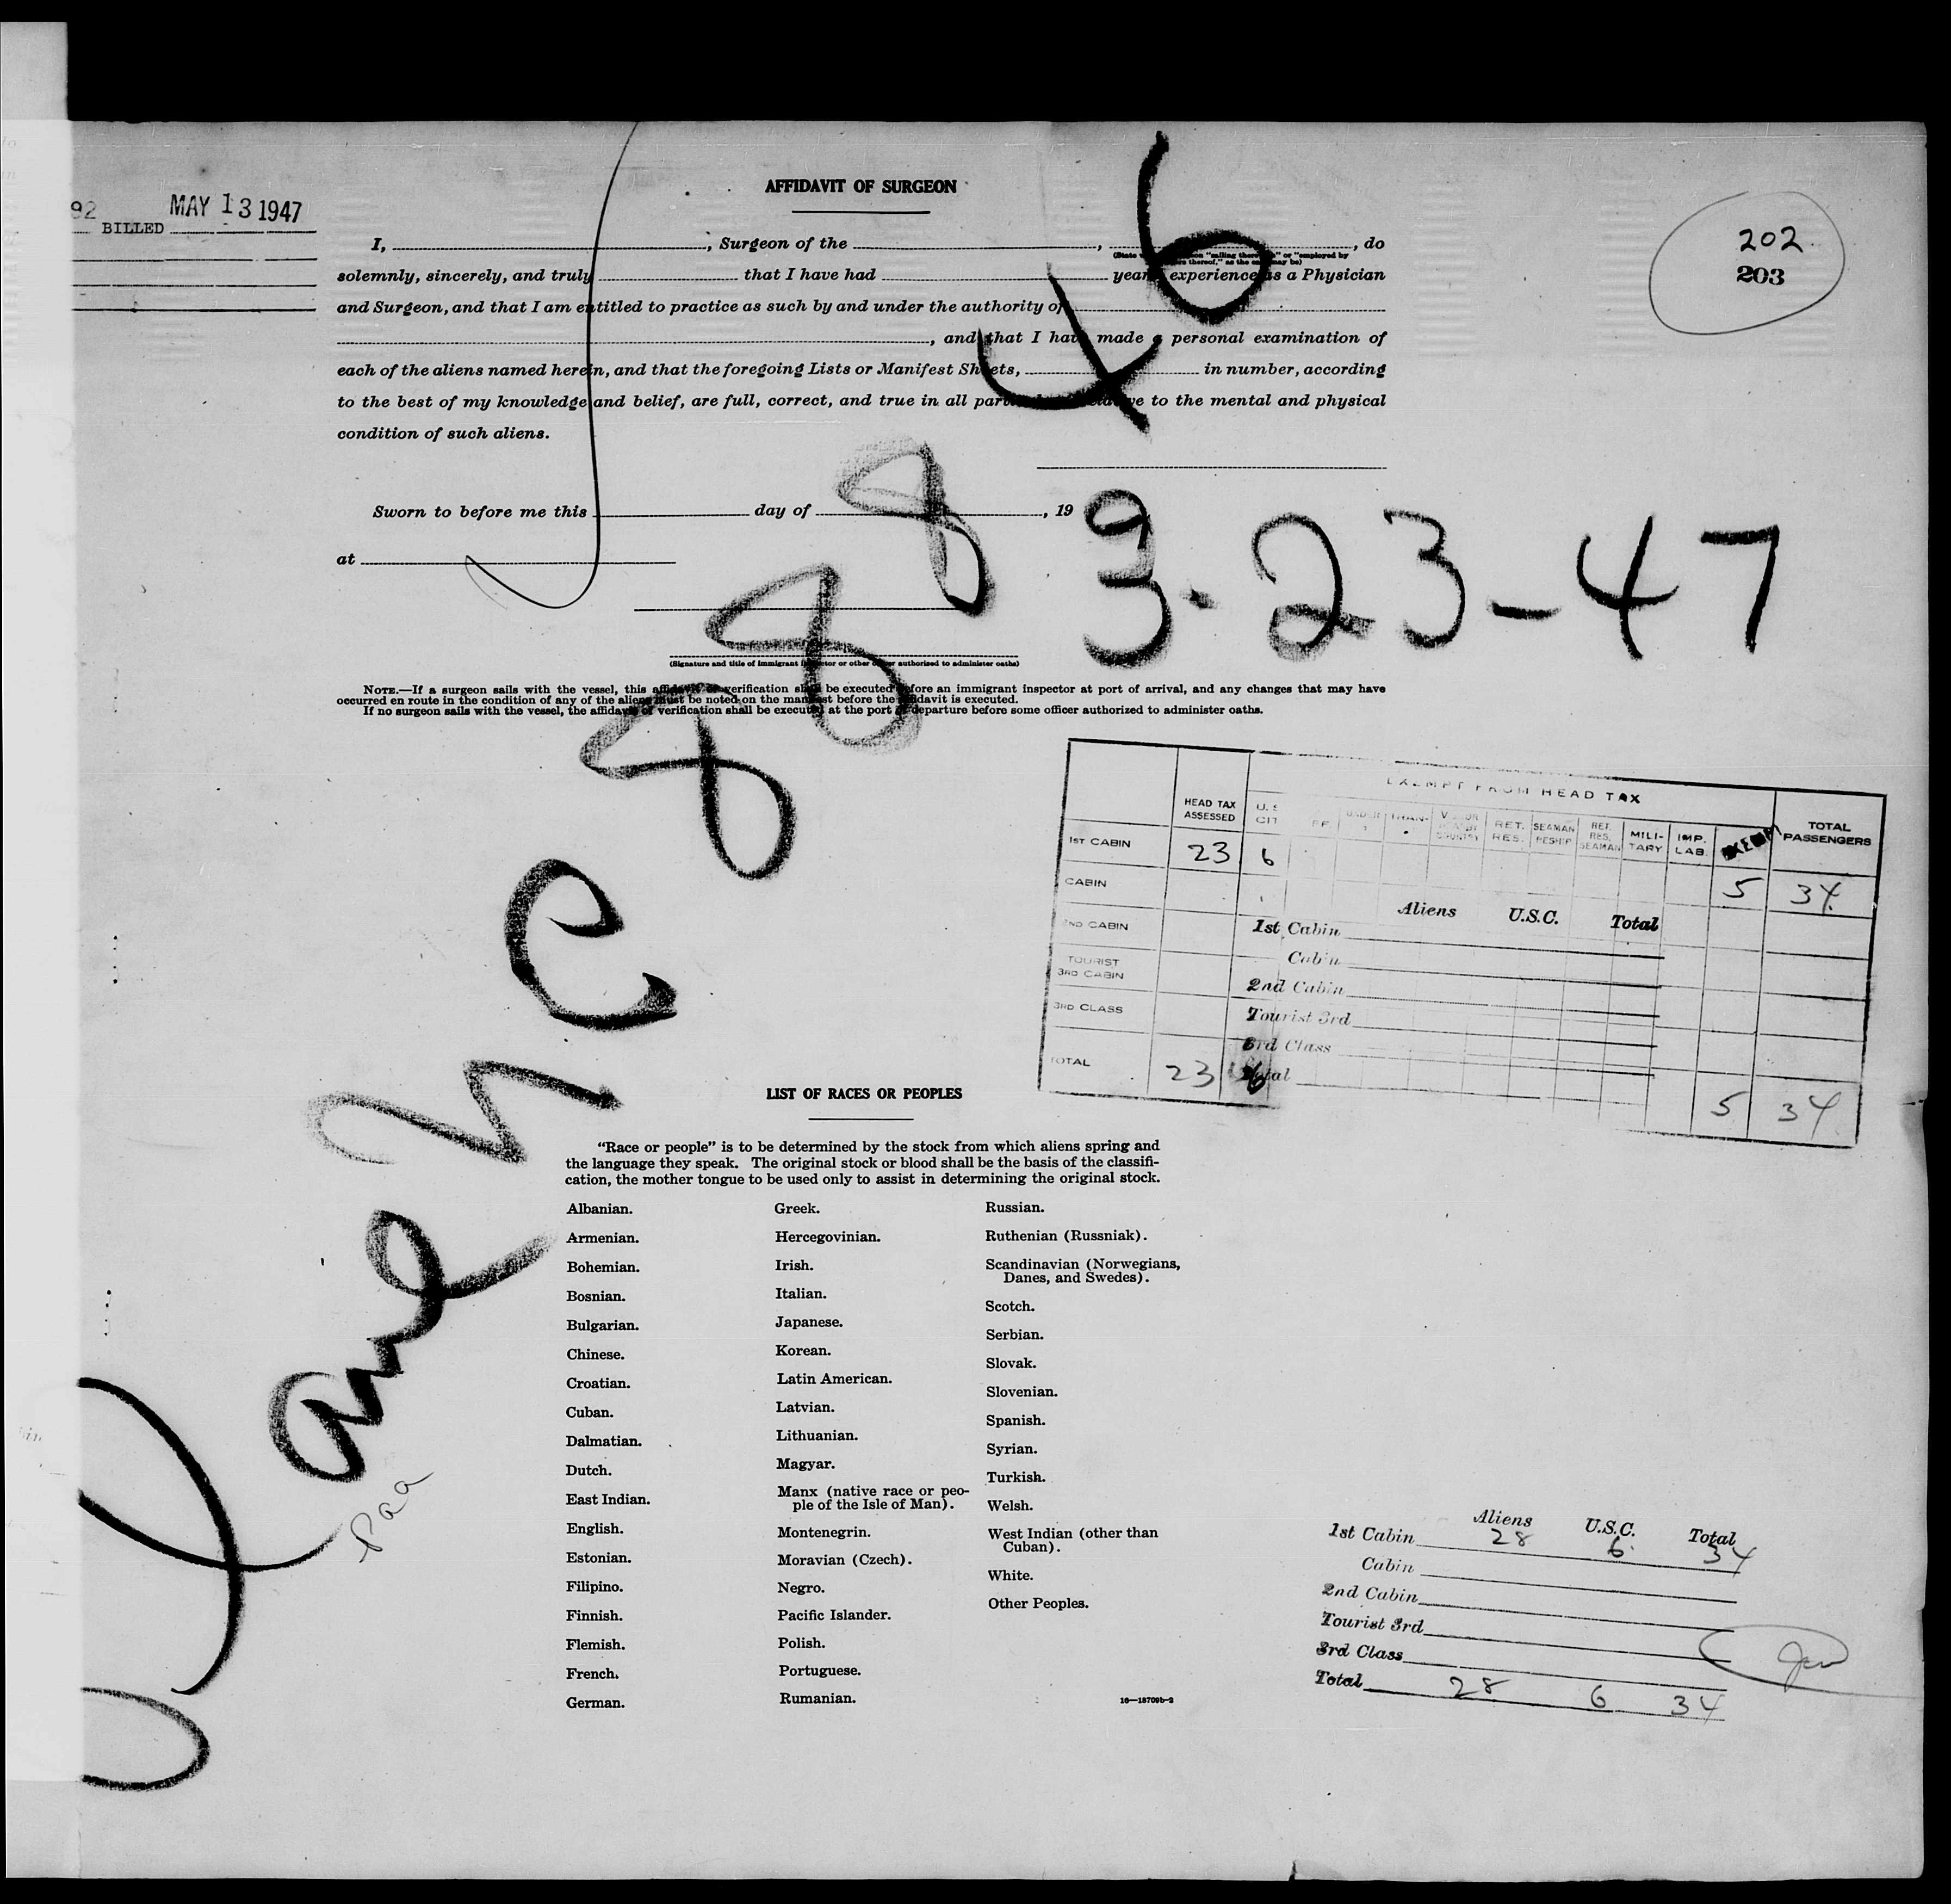 92
BILLED MAY 13 1947
AFFIDAVIT OF SURGEON
202
203
46
I, , Surgeon of the , , do
solemnly, sincerely, and truly that I have had years' experience as a Physician
and Surgeon, and that I am entitled to practice as such by and under the authority of
, and that I have made a personal examination of
each of the aliens named herein, and that the foregoing Lists or Manifest Sheets, in number, according
to the best of my knowledge and belief, are full, correct, and true in all to the mental and physical
condition of such aliens.
Sworn to before me this day of , 19
at
3-23-47
(Signature and title of immigrant inspector or other officer authorized to administer oaths)
NOTE.—If a surgeon sails with the vessel, this affidavit or verification shall be executed before an immigrant inspector at port of arrival, and any changes that may have
occurred en route in the condition of any of the aliens must be noted on the manifest before the affidavit is executed.
If no surgeon sails with the vessel, the affidavit or verification shall be executed at the port of departure before some officer authorized to administer oaths.
Plane NC 88888
Paa
EXEMPT FROM HEAD TAX
HEAD TAX ASSESSED U.S. CIT RET. RES. SEAMAN RESHIP RET. RES. SEAMAN MILITARY IMP. LAB. EXEMPT TOTAL PASSENGERS
1ST CABIN 23 6 5 34
CABIN
2ND CABIN
TOURIST 3RD CABIN
3RD CLASS
TOTAL 23 6 5 34
Aliens U.S.C. Total
1st Cabin
Cabin
2nd Cabin
Tourist 3rd
3rd Class
Total
LIST OF RACES OR PEOPLES
"Race or people" is to be determined by the stock from which aliens spring and
the language they speak. The original stock or blood shall be the basis of the classifi-
cation, the mother tongue to be used only to assist in determining the original stock.
Albanian.
Armenian.
Bohemian.
Bosnian.
Bulgarian.
Chinese.
Croatian.
Cuban.
Dalmatian.
Dutch.
East Indian.
English.
Estonian.
Filipino.
Finnish.
Flemish.
French.
German.
Greek.
Hercegovinian.
Irish.
Italian.
Japanese.
Korean.
Latin American.
Latvian.
Lithuanian.
Magyar.
Manx (native race or peo-
ple of the Isle of Man).
Montenegrin.
Moravian (Czech).
Negro.
Pacific Islander.
Polish.
Portuguese.
Rumanian.
Russian.
Ruthenian (Russniak).
Scandinavian (Norwegians,
Danes, and Swedes).
Scotch.
Serbian.
Slovak.
Slovenian.
Spanish.
Syrian.
Turkish.
Welsh.
West Indian (other than
Cuban).
White.
Other Peoples.
16—18709b-2
Aliens U.S.C. Total
1st Cabin 28 6 34
Cabin
2nd Cabin
Tourist 3rd
3rd Class
Total 28 6 34